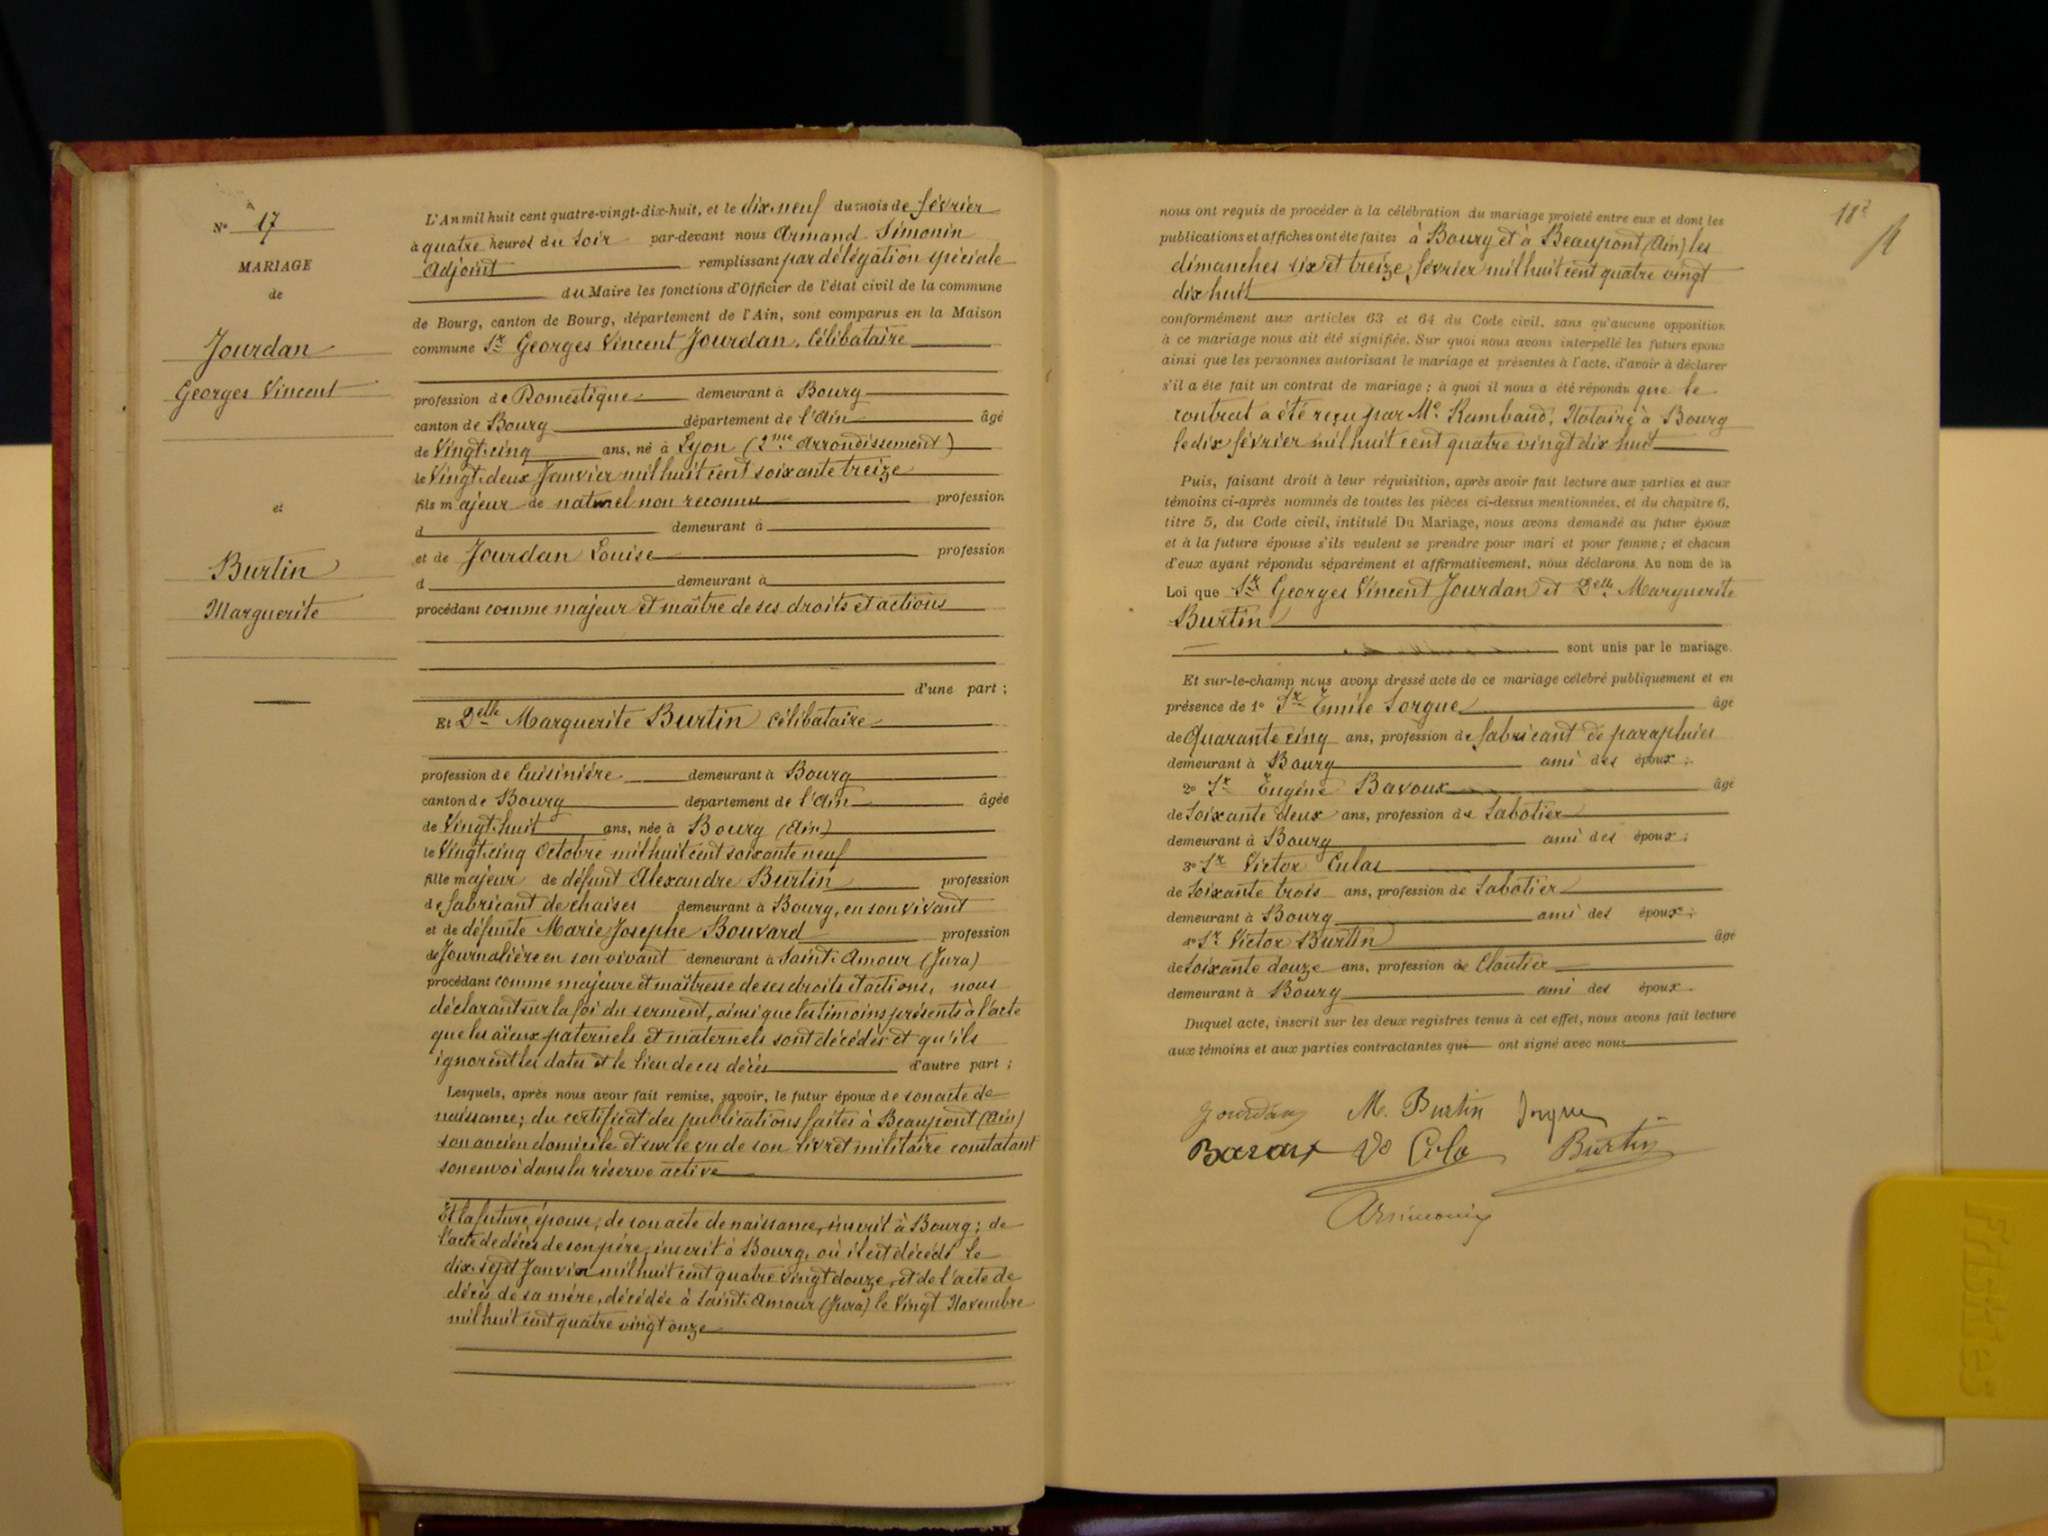 N° 17
MARIAGE
de
Jourdan
Georges Vincent
et
Burtin
Marguerite
L'An mil huit cent quatre-vingt-dix-huit, et le dix-neuf du mois de février
à quatre heures du soir par-devant nous Armand Simonin
Adjoint remplissant par délégation spéciale
du Maire les fonctions d'Officier de l'état civil de la commune
de Bourg, canton de Bourg, département de l'Ain, sont comparus en la Maison
commune Sr Georges Vincent Jourdan, Célibataire
profession de Domestique demeurant à Bourg
canton de Bourg département de l'Ain âgé
de Vingt-cinq ans, né à Lyon (2me Arrondissement)
le Vingt-deux Janvier mil huit cent soixante treize
fils majeur de naturel non reconnu profession
d demeurant à
et de Jourdan Louise profession
d demeurant à
procédant comme majeur et maître de ses droits et actions
d'une part ;
Et Delle Marguerite Burtin Célibataire
profession de Cuisinière demeurant à Bourg
canton de Bourg département de l'Ain âgée
de Vingt-huit ans, née à Bourg (Ain)
le Vingt-cinq Octobre mil huit cent soixante neuf
fille majeur de défunt Alexandre Burtin profession
de fabricant de chaises demeurant à Bourg, en son vivant
et de défunte Marie Josephe Bouvard profession
de Journalière en son vivant demeurant à Saint-Amour (Jura)
procédant comme majeure et maîtresse de ses droits et actions, nous
déclarant sur la foi du serment, ainsi que les témoins présents à l'acte
que les aïeux paternels et maternels sont décédés et qu'ils
ignorent les dates et le lieu de ces décès d'autre part ;
Lesquels, après nous avoir fait remise, savoir, le futur époux de son acte de
naissance; du certificat des publications faites à Beaupont (Ain)
son ancien domicile et sur le vu de son livret militaire constatant
son envoi dans la réserve active
Et la future épouse, de son acte de naissance, inscrit à Bourg; de
l'acte de décès de son père, inscrit à Bourg, où il est décédé le
dix-sept Janvier mil huit cent quatre vingt douze, et de l'acte de
décès de sa mère, décédée à Saint-Amour (Jura) le Vingt Novembre
mil huit cent quatre vingt onze
nous ont requis de procéder à la célébration du mariage projeté entre eux et dont les
publications et affiches ont été faites à Bourg et à Beaupont (Ain) les
dimanches six et treize février mil huit cent quatre vingt
dix huit
conformément aux articles 63 et 64 du Code civil, sans qu'aucune opposition
à ce mariage nous ait été signifiée. Sur quoi nous avons interpellé les futurs époux
ainsi que les personnes autorisant le mariage et présentes à l'acte, d'avoir à déclarer
s'il a été fait un contrat de mariage ; à quoi il nous a été répondu que le
contrat a été reçu par Me Rambaud, Notaire à Bourg
le dix février mil huit cent quatre vingt dix huit
Puis, faisant droit à leur réquisition, après avoir fait lecture aux parties et aux
témoins ci-après nommés de toutes les pièces ci-dessus mentionnées, et du chapitre 6,
titre 5, du Code civil, intitulé Du Mariage, nous avons demandé au futur époux
et à la future épouse s'ils veulent se prendre pour mari et pour femme ; et chacun
d'eux ayant répondu séparément et affirmativement, nous déclarons Au nom de la
Loi que Sr Georges Vincent Jourdan et Delle Marguerite
Burtin
sont unis par le mariage.
Et sur-le-champ nous avons dressé acte de ce mariage célébré publiquement et en
présence de 1° Sr Emile Sorgue âgé
de Quarante cinq ans, profession de fabricant de parapluies
demeurant à Bourg ami des époux ;
2° Sr Eugène Bavoux âgé
de Soixante deux ans, profession de Sabotier
demeurant à Bourg ami des époux ;
3° Sr Victor Culas
de Soixante trois ans, profession de Sabotier
demeurant à Bourg ami des époux ;
4° Sr Victor Burtin âgé
de Soixante douze ans, profession de Cloutier
demeurant à Bourg ami des époux.
Duquel acte, inscrit sur les deux registres tenus à cet effet, nous avons fait lecture
aux témoins et aux parties contractantes qui ont signé avec nous
Jourdan M. Burtin Sorgue
Bavoux Burtin
ASimonin
Fristies